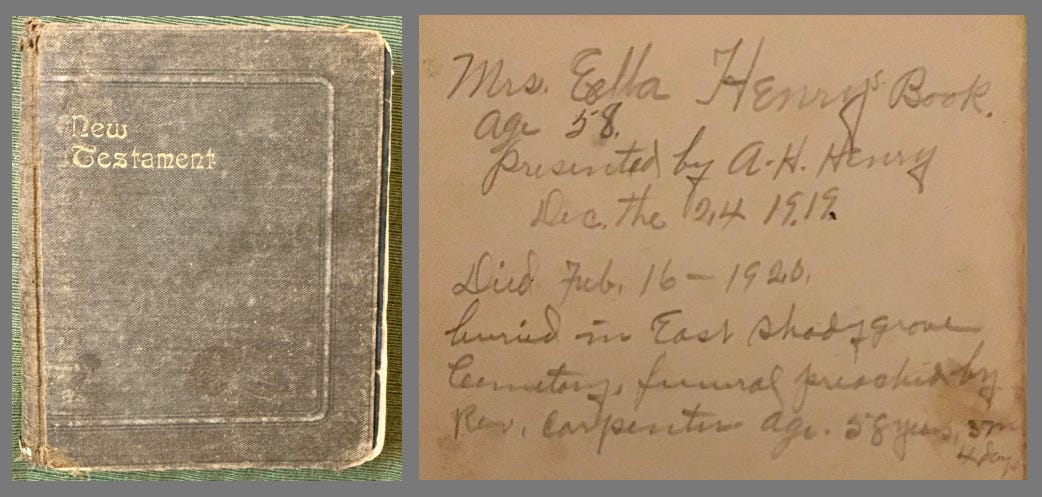 New
Testament
Mrs. Eella Henry's Book.
Age 58.
presented by A.H. Henry
Dec. the 24 1919.
Died Feb. 16 - 1920.
buried in East Shady grove
Cemetary, funeral preached by
Rev. Carpenter age. 58 years, 3 m
4 days